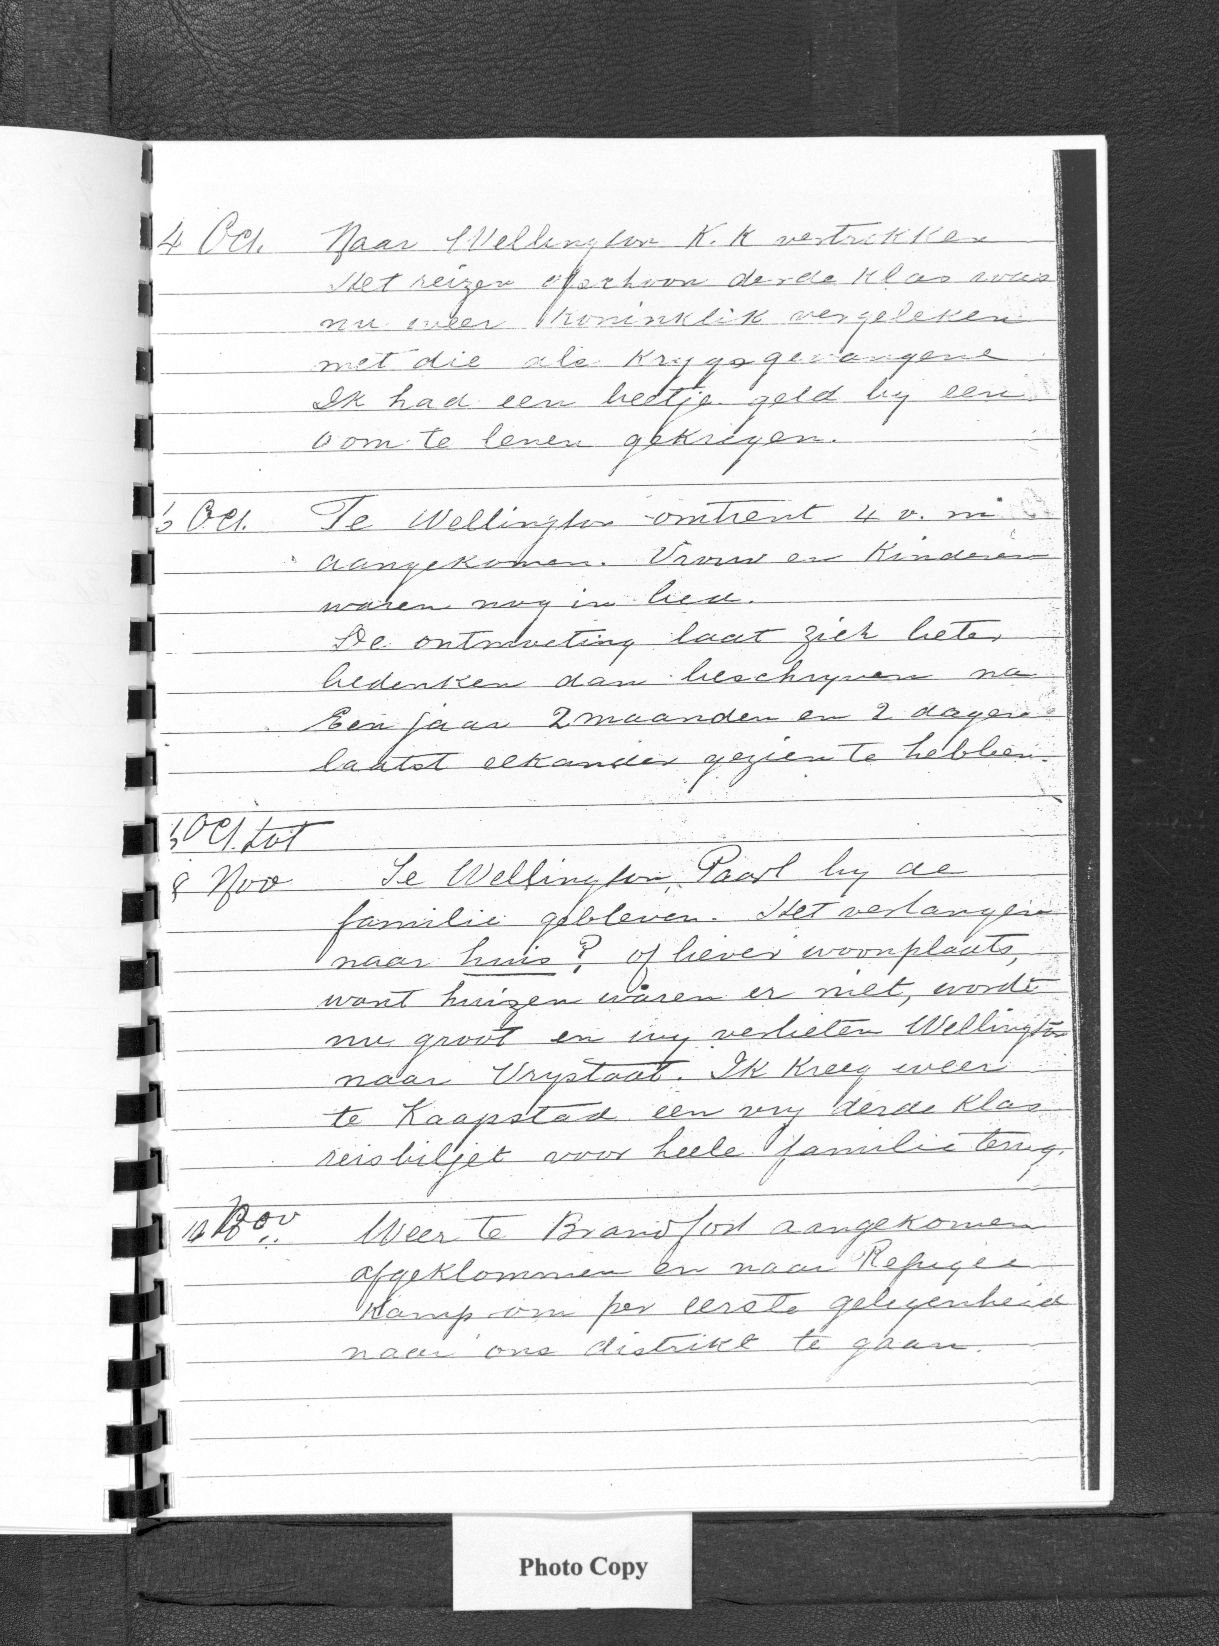 4 Oct. Naar Wellington K. K vertrekken
Het reizen ofschoon derde klas was
nu weer koninklik vergeleken
met die als krygsgevangene
Ik had een beetje geld by een
oom te lenen gekregen.
5 Oct. Te Wellington omtrent 4 v. m
aangekomen. Vrouw en Kinderen
waren nog in bed.
De ontmoeting laat zich beter
bedenken dan beschryven na
Een jaar 2 maanden en 2 dagen
laatst elkander gezien te hebben.
5 Oct. tot
8 Nov Te Wellington, Paarl by de
familie gebleven. Het verlangen
naar huis? of liever woonplaats,
want huizen waren er niet, wordt
nu groot en wy verlieten Wellington
naar Vrystaat. Ik Kreeg weer
te Kaapstad een vry derde klas
reisbiljet voor heele familie terug.
Nov Weer te Brandfort aangekomen
afgeklommen en naar Refugee
Kamp om per eerste gelegenheid
naar ons distrikt te gaan.
Photo Copy